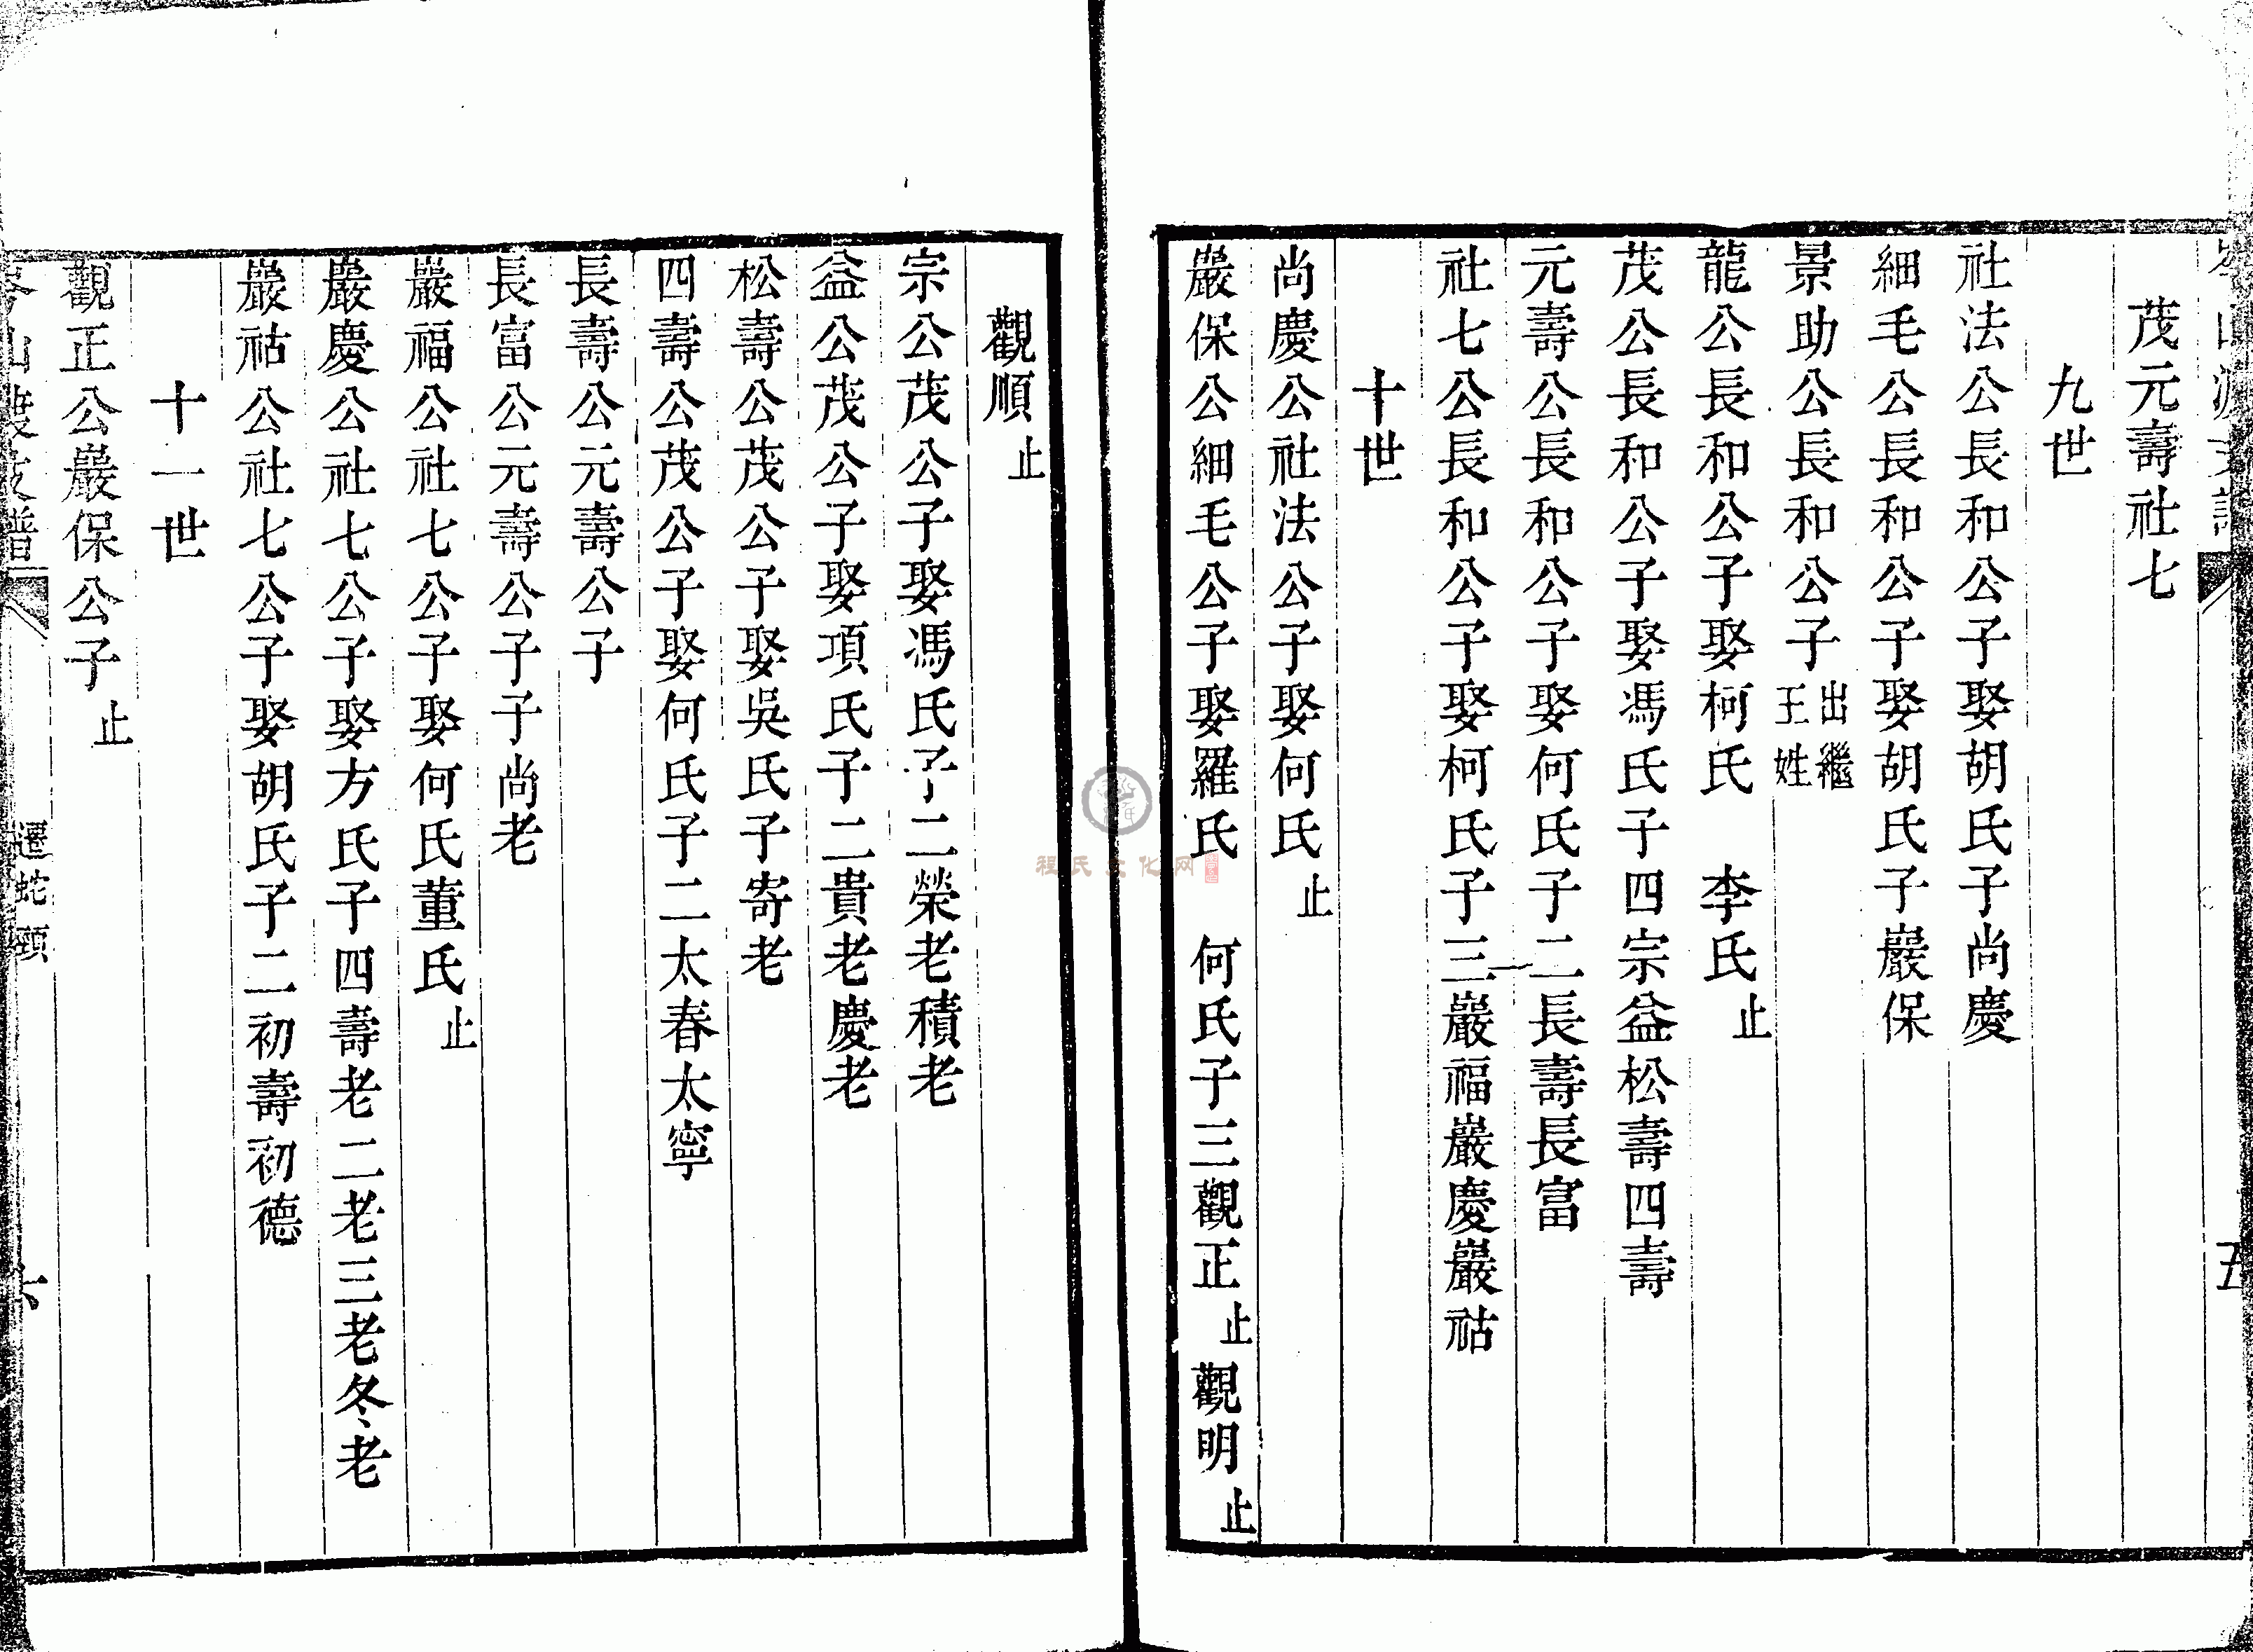 茂元壽社七
九世
社法公長和公子娶胡氏子尚慶
細毛公長和公子娶胡氏子巖保
景助公長和公子出繼王姓
龍公長和公子娶柯氏 李氏止
茂公長和公子娶馮氏子四宗益松壽四壽
元壽公長和公子娶何氏子二長壽長富
社七公長和公子娶柯氏子三巖福巖慶巖祜
十世
尚慶公社法公子娶何氏止
巖保公細毛公子娶羅氏 何氏子三觀正止觀明止
觀順止
宗公茂公子娶馮氏子二榮老積老
益公茂公子娶項氏子二貴老慶老
松壽公茂公子娶吳氏子寄老
四壽公茂公子娶何氏子二太春太寧
長壽公元壽公子
長富公元壽公子子尚老
巖福公社七公子娶何氏董氏止
巖慶公社七公子娶方氏子四壽老二老三老冬老
巖祜公社七公子娶胡氏子二初壽初德
十一世
觀正公巖保公子止
遷蛇頭
六
五
程氏文化网